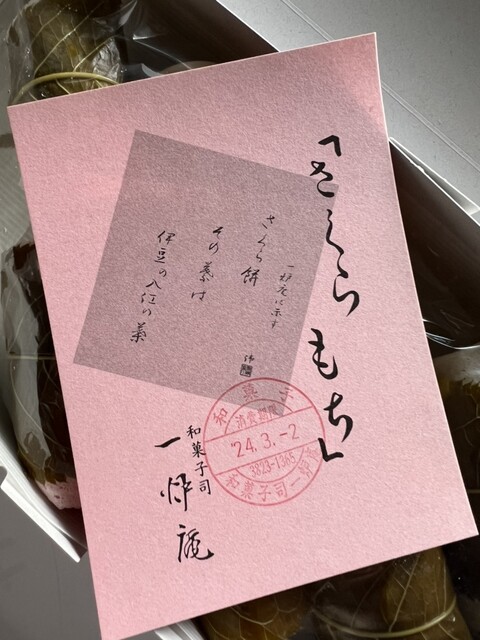 「さくらもち」
一炉庵に示す
さくら餅
その葉は
伊豆の
の葉
和菓子司
一炉庵
和菓子
消費期限
'24.3.-2
3823-1365
和菓子司一炉庵